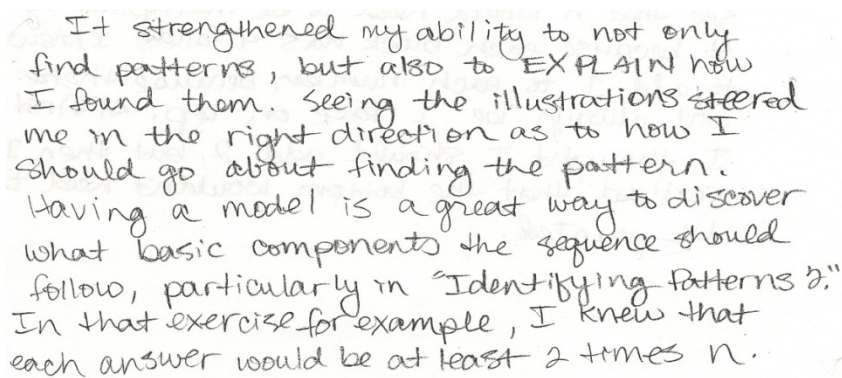 It strengthened my ability to not only
find patterns, but also to EXPLAIN how
I found them. Seeing the illustrations steered
me in the right direction as to how I
should go about finding the pattern.
Having a model is a great way to discover
what basic components the sequence should
follow, particularly in "Identifying Patterns 2."
In that exercise for example, I knew that
each answer would be at least 2 times n.